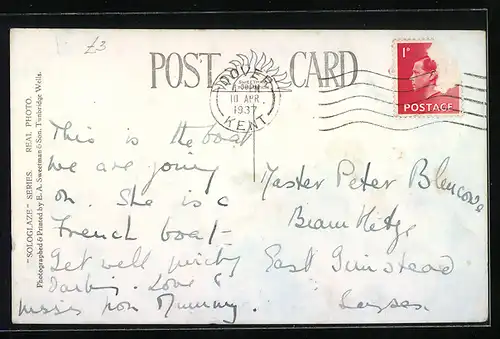 £3
POST CARD
1D
POSTAGE
DOVER
10 APR
1937
KENT
"SOLOGLAZE" SERIES. REAL PHOTO.
Photographed & Printed by E. A. Sweetman & Son, Tunbridge Wells.
This is the boat
we are going
on. She is a
French boat –
Get well quickly
Darling. Love &
kisses from Mummy.
Master Peter Blencowe
East Grinstead
Sussex